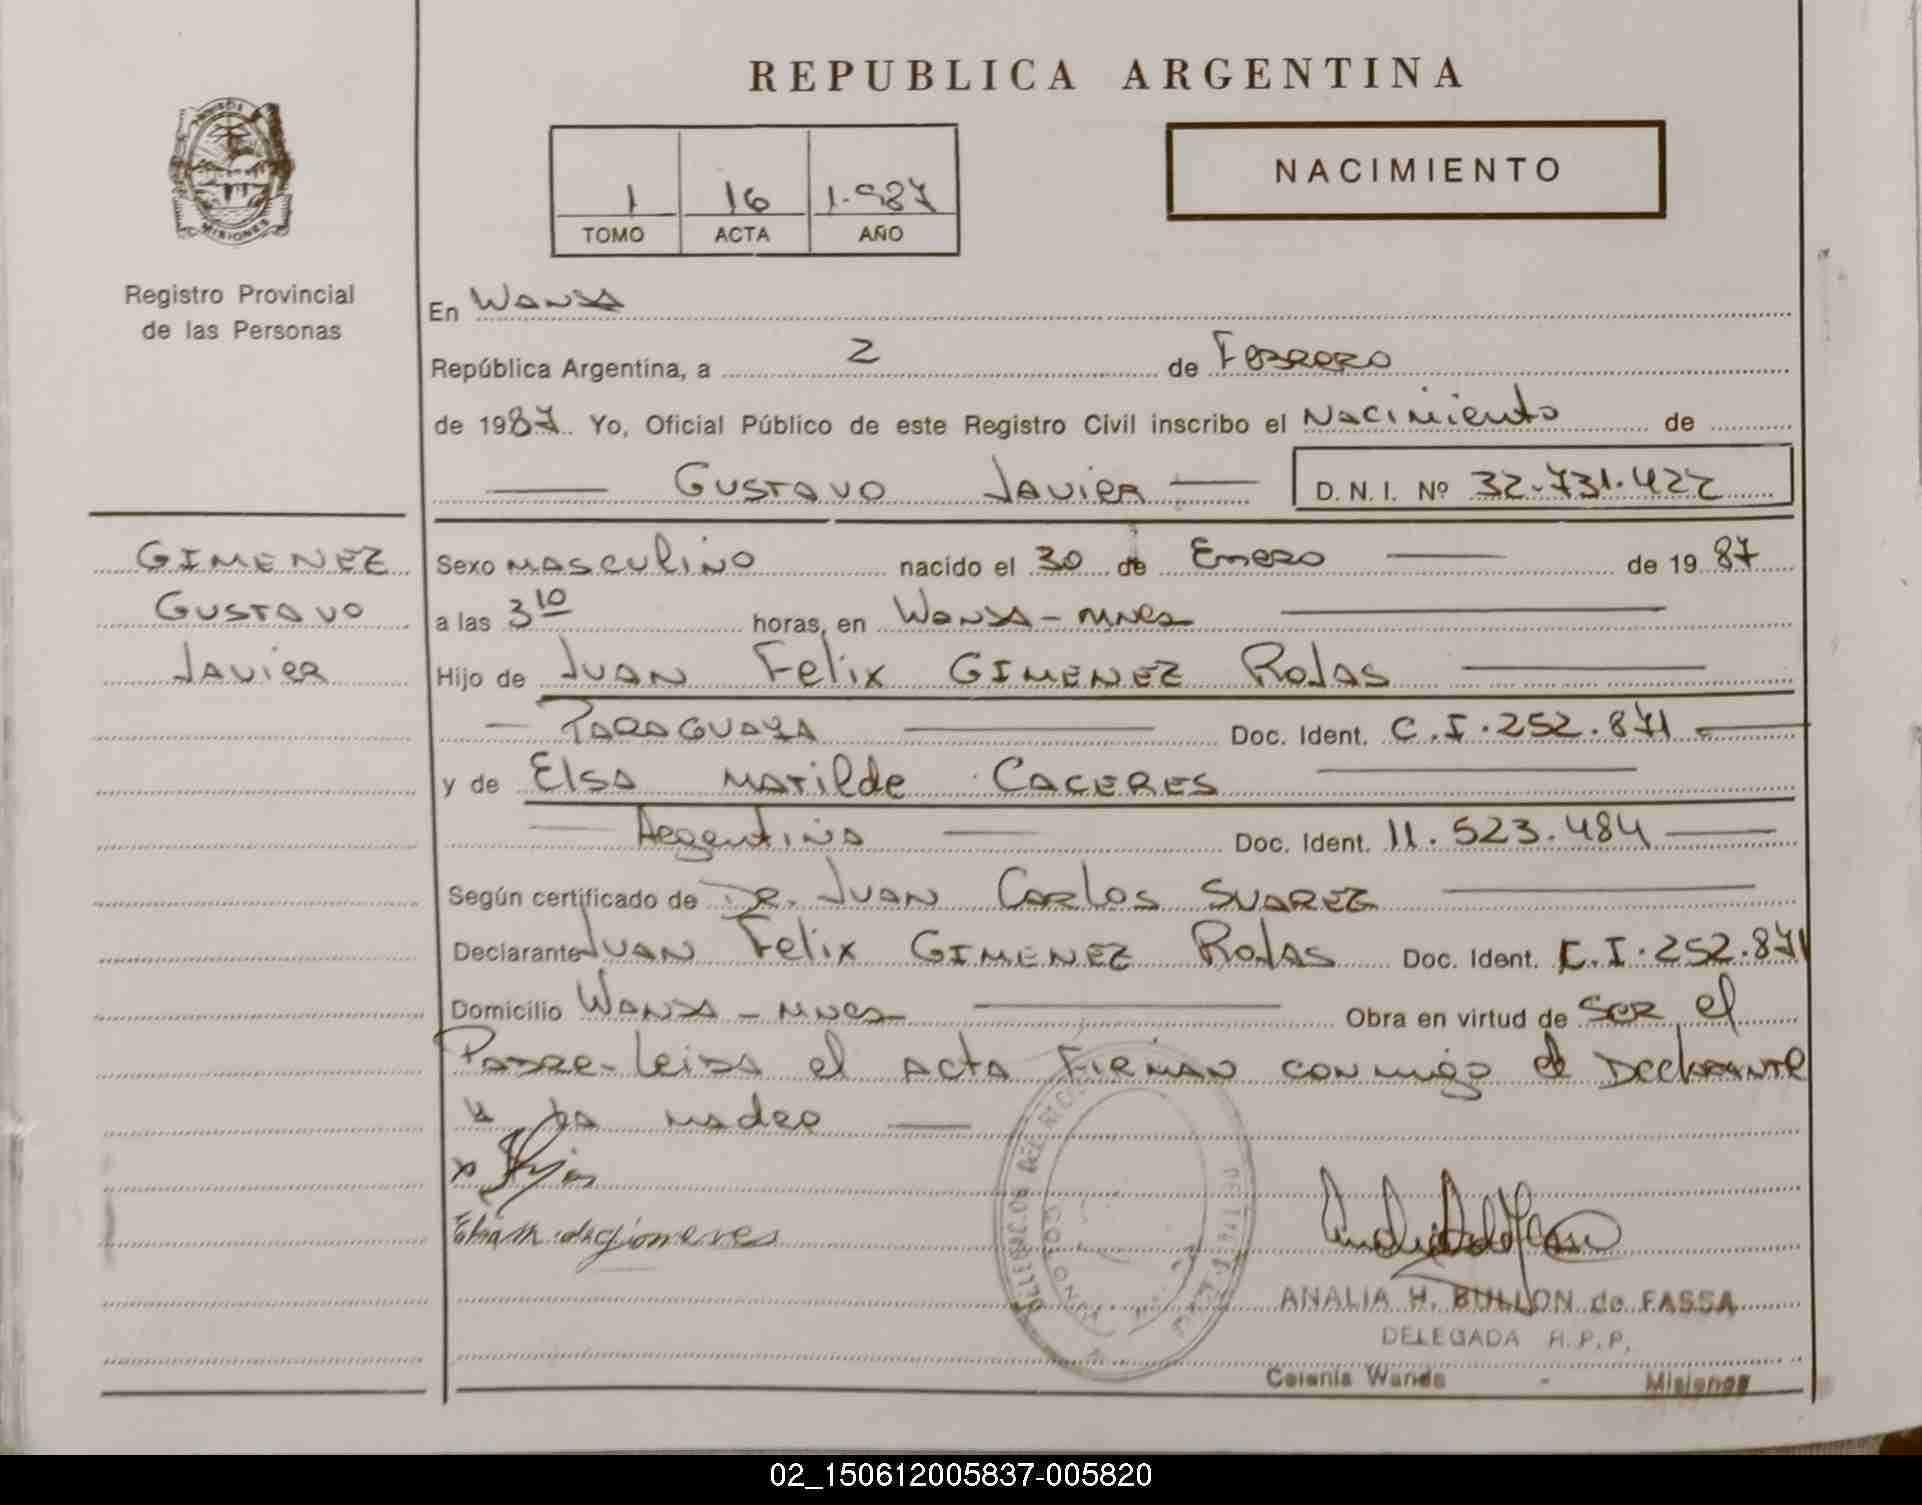 REPUBLICA ARGENTINA
MISIONES
Registro Provincial
de las Personas
1 16 1.987
TOMO ACTA AÑO
NACIMIENTO
En Wanda
República Argentina, a 2 de Febrero
de 1987. Yo, Oficial Público de este Registro Civil inscribo el Nacimiento de
Gustavo Javier D.N.I. Nº 32.731.422
GIMENEZ
Gustavo
Javier
Sexo masculino nacido el 30 de Enero de 1987
a las 3 10 horas, en Wanda - Mnes
Hijo de Juan Felix GIMENEZ Rojas
Paraguaya Doc. Ident. C.I. 252.871
y de Elsa Matilde CACERES
Argentina Doc. Ident. 11.523.484
Según certificado de Dr. Juan Carlos SUAREZ
Declarante Juan Felix GIMENEZ Rojas Doc. Ident. C.I. 252.871
Domicilio Wanda - Mnes Obra en virtud de ser el
Padre - leida el acta firman conmigo el Declarante
y la madre
ANALIA H. BULLON de FASSA
DELEGADA R.P.P.
Colonia Wanda - Misiones
02_150612005837-005820